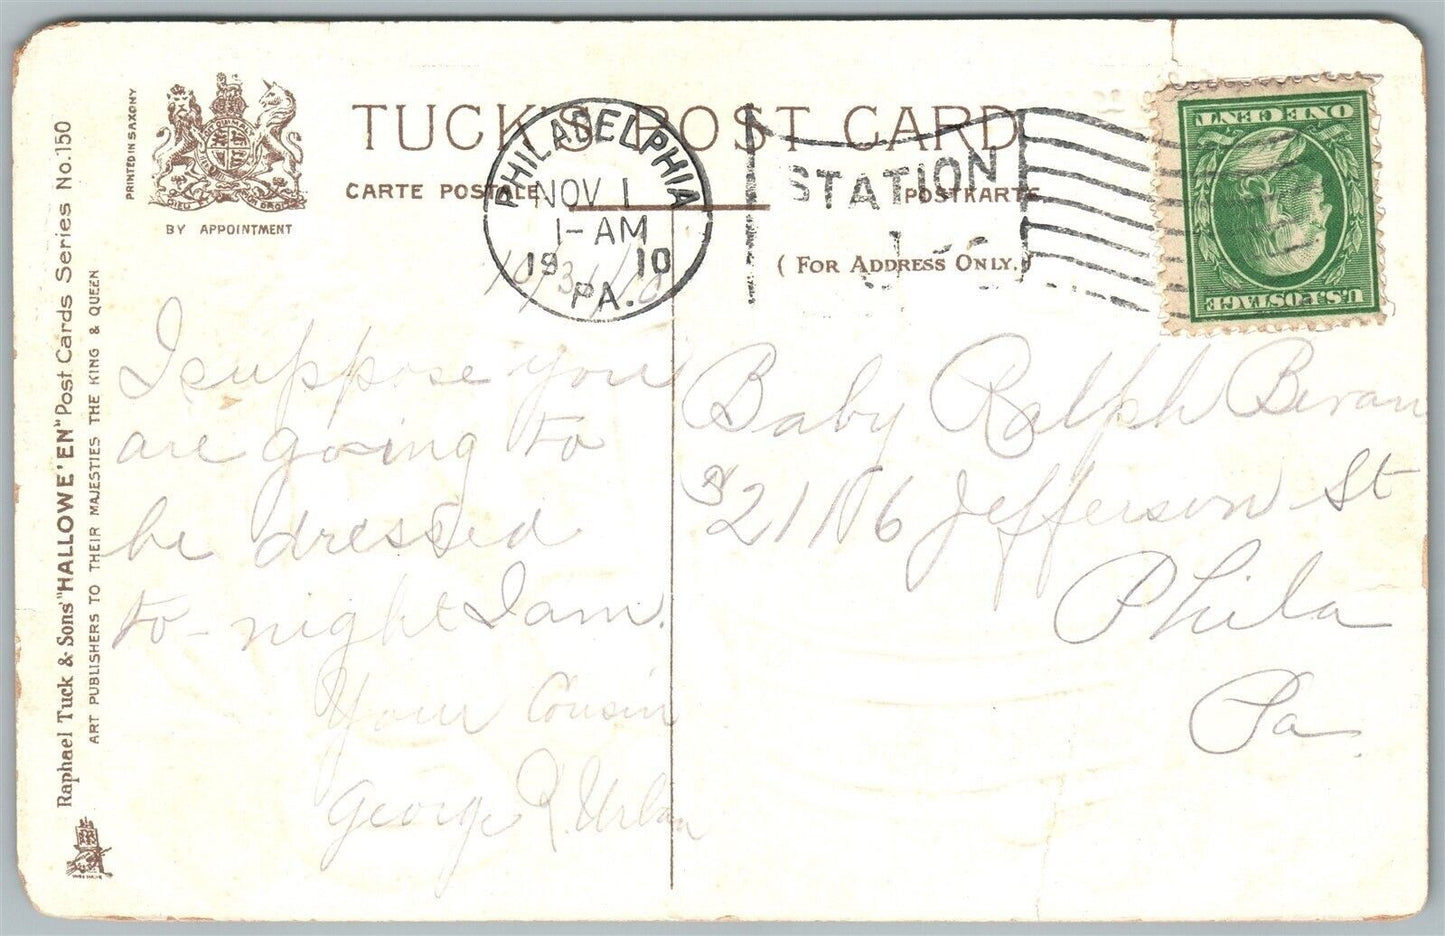 PRINTED IN SAXONY
BY APPOINTMENT
Raphael Tuck & Sons' "HALLOWE'EN" Post Cards Series No. 150
ART PUBLISHERS TO THEIR MAJESTIES THE KING & QUEEN
TUCK'S POST CARD
CARTE POSTALE
POSTKARTE
( FOR ADDRESS ONLY. )
PHILADELPHIA
NOV 1
1-AM
1910
PA.
STATION
J
ONE CENT
U.S. POSTAGE
10/31/10
I suppose you
are going to
be dressed
to-night I am.
Your Cousin
George R. Urban
Baby Ralph Bevan
2116 Jefferson St
Phila
Pa.